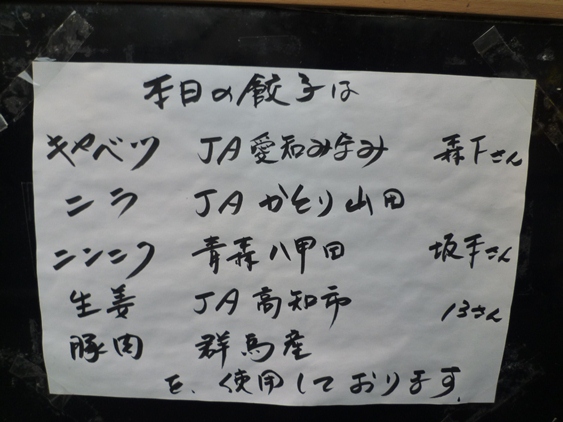 本日の餃子は
キャベツ JA愛知みなみ 森下さん
ニラ JAかとり山田
ニンニク 青森八甲田 坂手さん
生姜 JA高知市 13さん
豚肉 群馬産
を、使用しております。